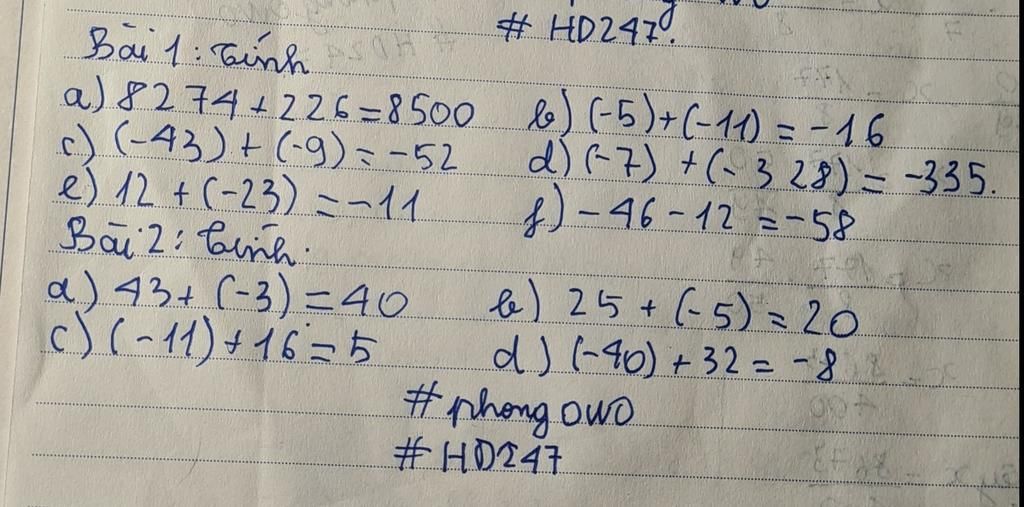 # HD247.
Bài 1: Tính
a) 8274 + 226 = 8500 b) (-5) + (-11) = -16
c) (-43) + (-9) = -52 d) (-7) + (-328) = -335.
e) 12 + (-23) = -11 f) -46 - 12 = -58
Bài 2: Tính.
a) 43 + (-3) = 40 b) 25 + (-5) = 20
c) (-11) + 16 = 5 d) (-40) + 32 = -8
# phong owo
# HD247